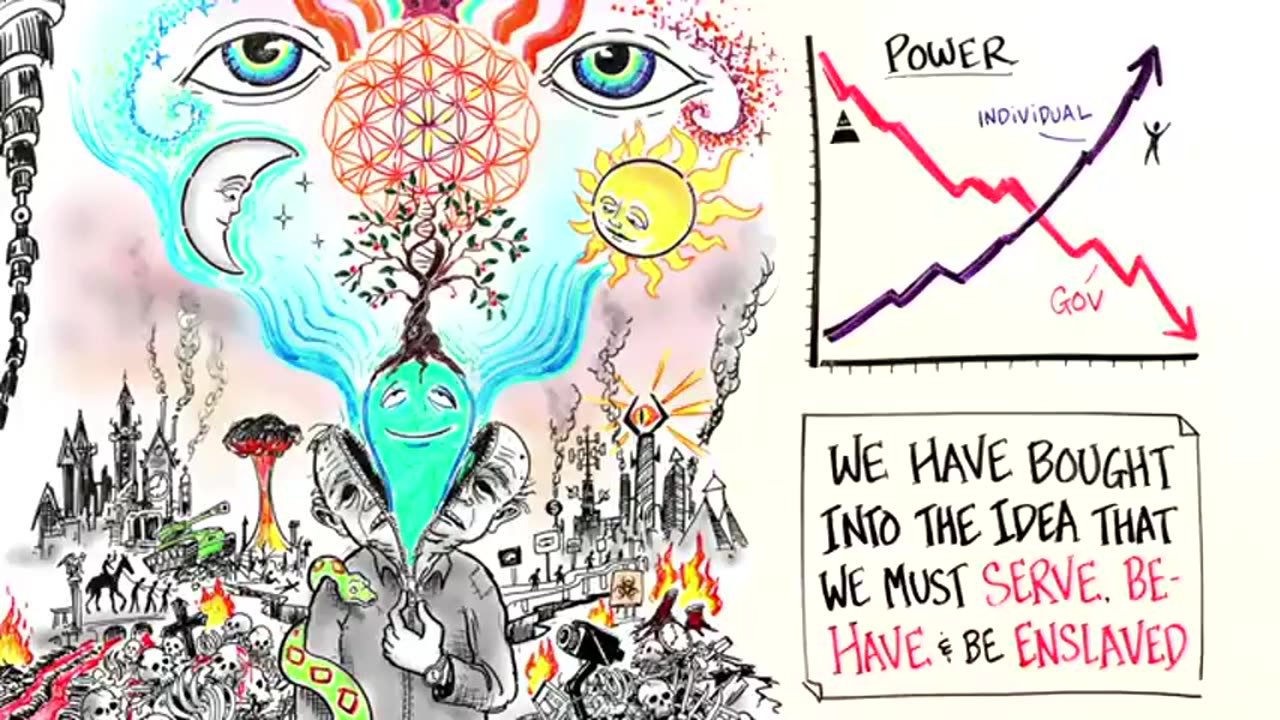 POWER
INDIVIDUAL
GOV
WE HAVE BOUGHT
INTO THE IDEA THAT
WE MUST SERVE, BE-
HAVE & BE ENSLAVED